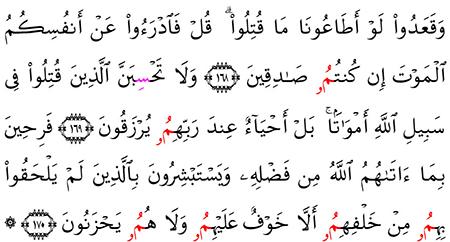 وَقَعَدُواْ لَوۡ أَطَاعُونَا مَا قُتِلُواْۗ قُلۡ فَٱدۡرَءُواْ عَنۡ أَنفُسِكُمُ
ٱلۡمَوۡتَ إِن كُنتُمُۥ صَٰدِقِينَ ﴿١٦٨﴾ وَلَا تَحۡسِبَنَّ ٱلَّذِينَ قُتِلُواْ فِى
سَبِيلِ ٱللَّهِ أَمۡوَٰتَۢاۚ بَلۡ أَحۡيَآءٌ عِندَ رَبِّهِمُۥ يُرۡزَقُونَ ﴿١٦٩﴾ فَرِحِينَ
بِمَآ ءَاتَىٰهُمُ ٱللَّهُ مِن فَضۡلِهِۦ وَيَسۡتَبۡشِرُونَ بِٱلَّذِينَ لَمۡ يَلۡحَقُواْ
بِهِمُۥ مِنۡ خَلۡفِهِمُۥ أَلَّا خَوۡفٌ عَلَيۡهِمُۥ وَلَا هُمُۥ يَحۡزَنُونَ ﴿١٧٠﴾ ۞